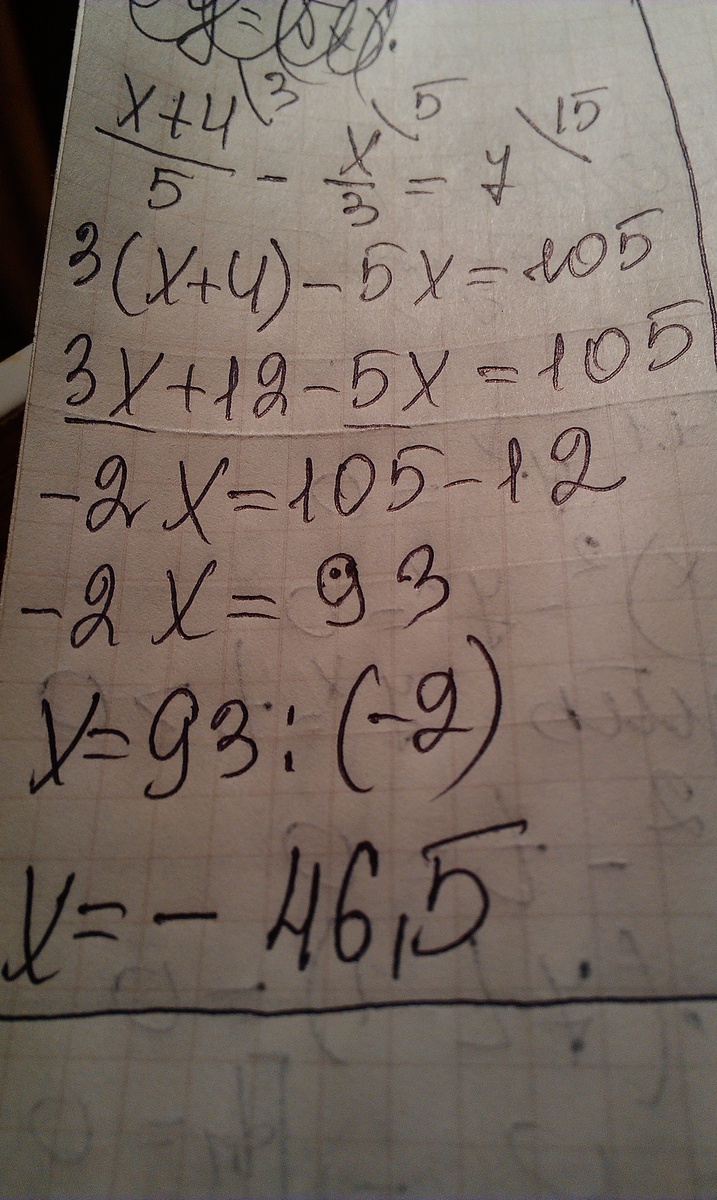 (x+4)/5 \3 - x/3 \5 = 7 \15
3(x+4)-5x=105
3x+12-5x=105
-2x=105-12
-2x=93
x=93:(-2)
x=-46,5